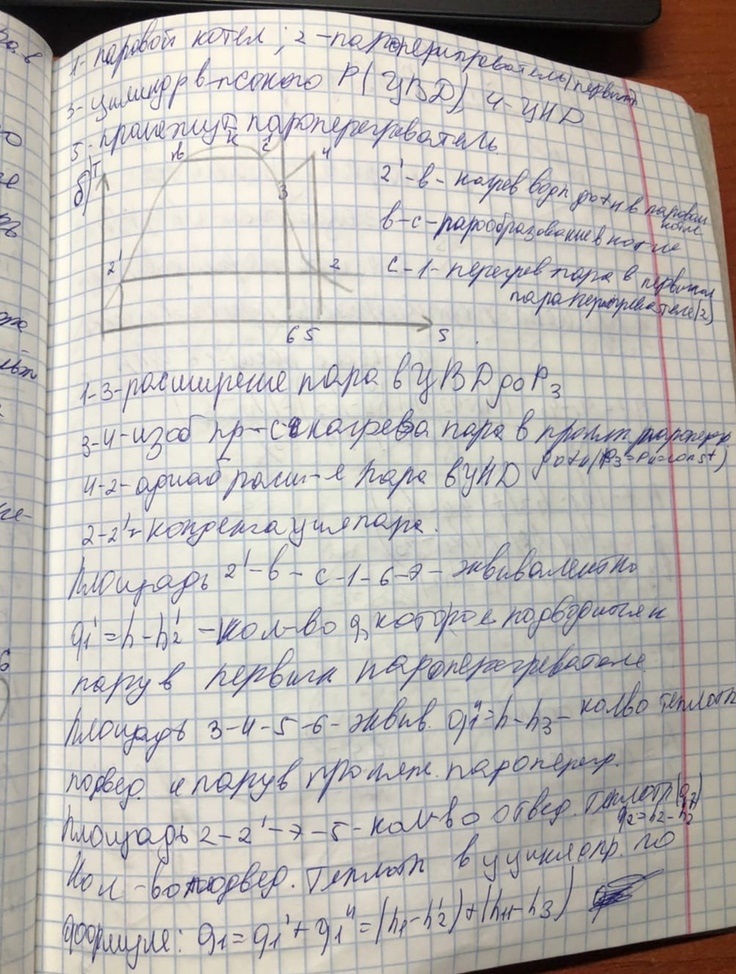 1-паровой котел; 2-пароперегреватель (первичн)
3-цилиндр в-ысокого P (ЦВД) 4-ЦНД
5-промежут пароперегреватель
б) T в к с 4
3
2' 2
6 5 s
2'-в-нагрев воды до tн в паровом котле
в-с-парообразование в котле
с-1-перегрев пара в первичном
пароперегревателе(2)
1-3-расширение пара в ЦВД до P3
3-4-изоб пр-с нагрева пара в пром. пароперегр
(P3=P4=const)
4-2-адиаб расш-е пара в ЦНД
2-2'- конденсация пара.
Площадь 2'-в-с-1-6-7-эквивалентно
q1'=h-h2' -кол-во q которое подводится к
пару в первичн пароперегревателе
Площадь 3-4-5-6-эквив. q1''=h-h3- колво теплоты
подвед. к пару в пром. пароперегр.
Площадь 2-2'-7-5-кол-во отвед. теплоты (q2)
q2=h2-h2'
Кол-во подвед. теплоты в цикле опр. по
формуле: q1=q1'+q1''=(h1-h2')+(h4-h3)